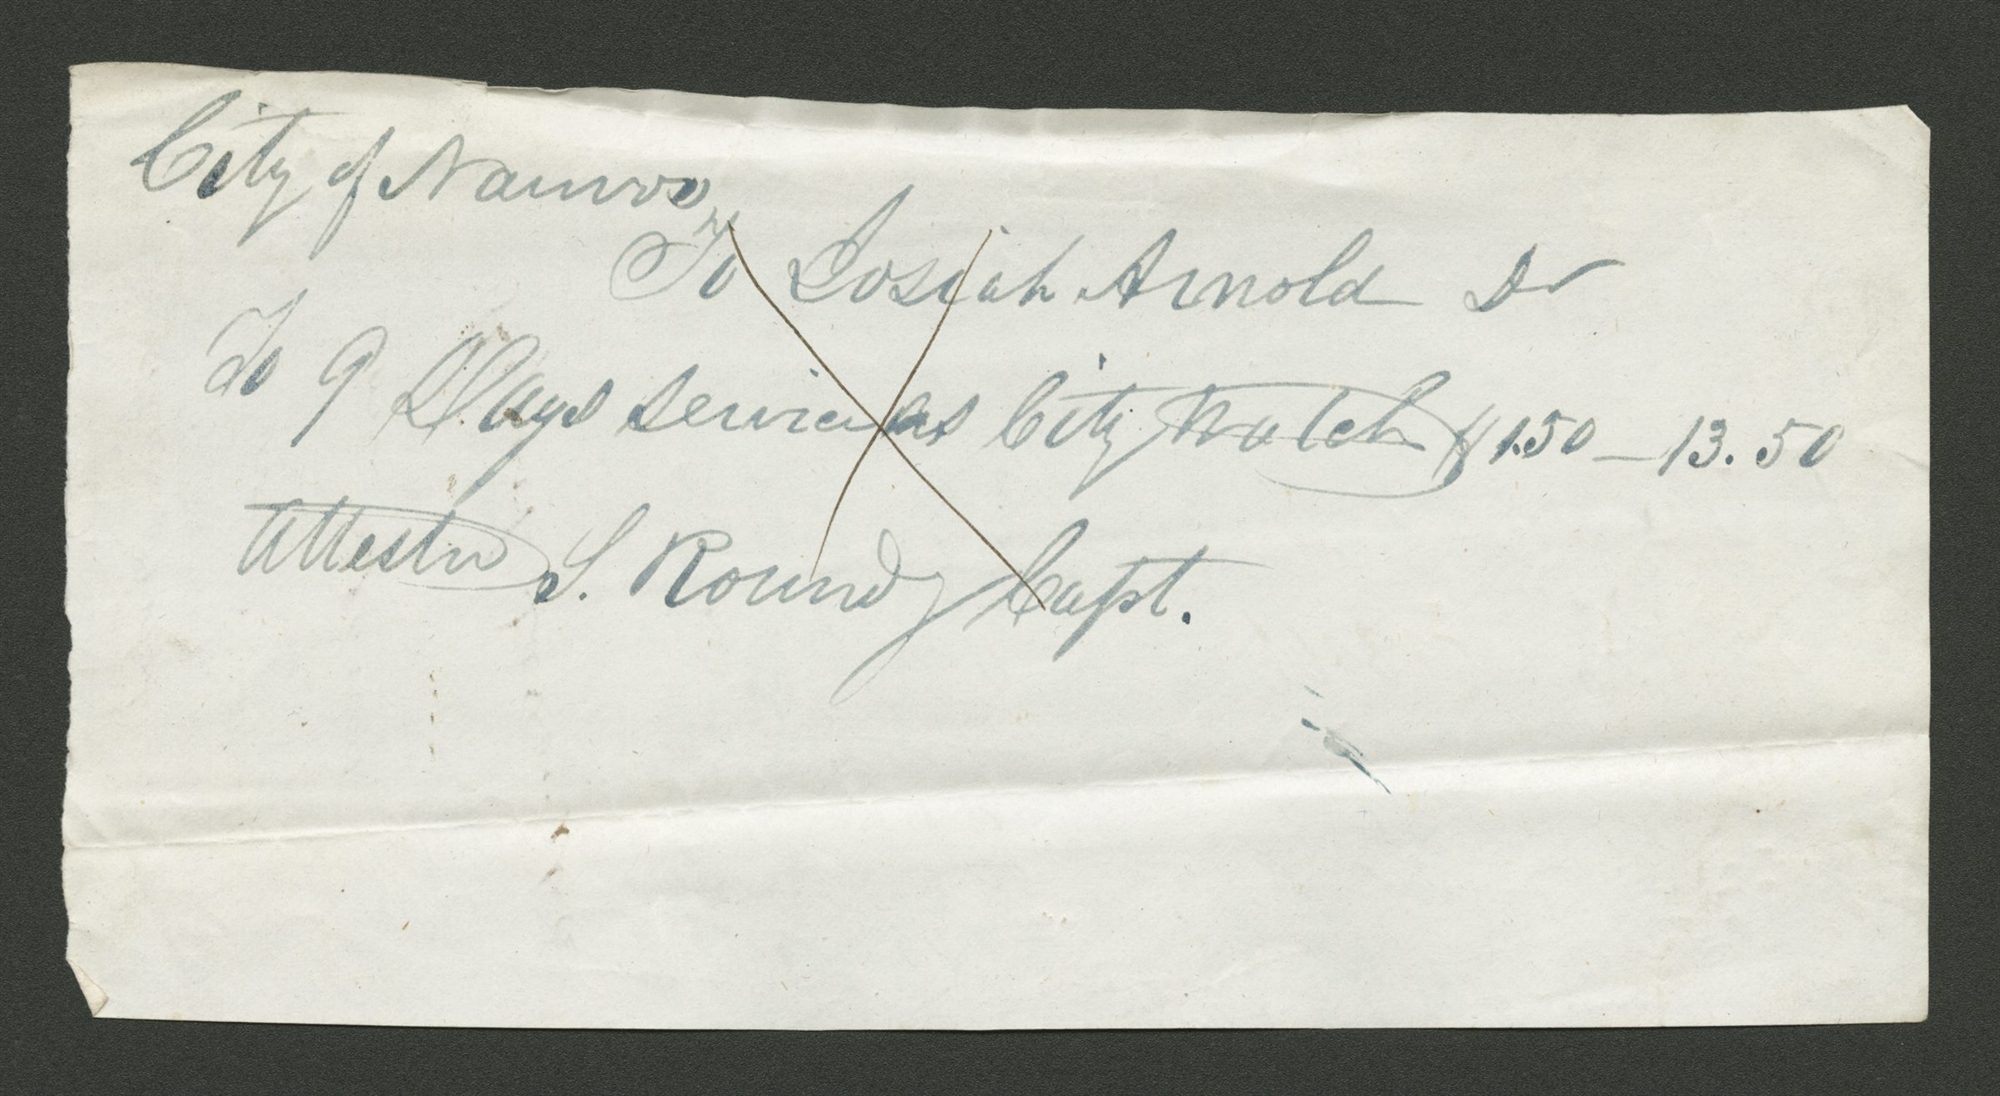 City of Nauvoo
To Josiah Arnold Dr
To 9 Days Service as City Watch $1.50 — 13.50
Attest S. Roundy Capt.